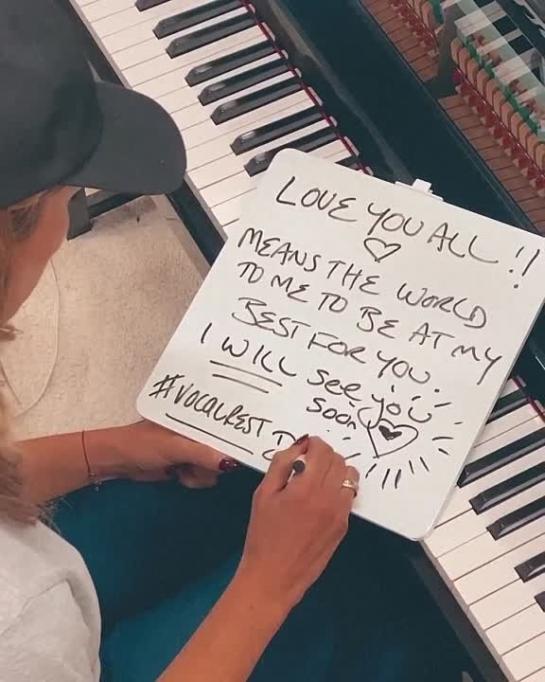 LOVE YOU ALL !!
MEANS THE WORLD
TO ME TO BE AT MY
BEST FOR YOU.
I WILL see you
soon
#VOCALREST